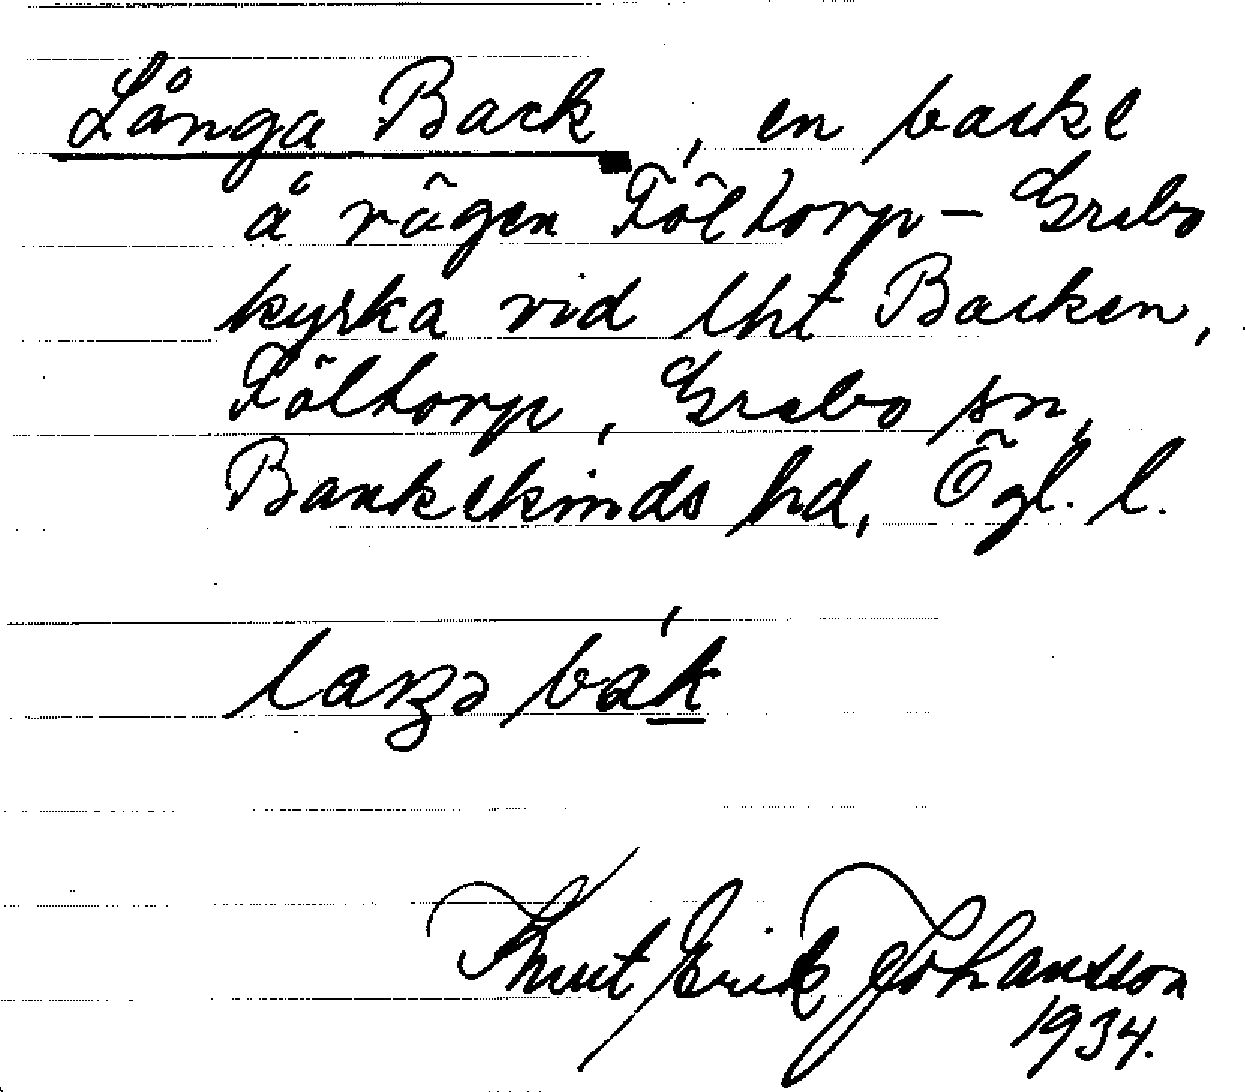 Långa Back, en backe
å vägen Föltorp – Grebo
kyrka vid lht Backen,
Föltorp, Grebo sn,
Bankekinds hd, Ögl. l.
laŋə bák
Knut Erik Johansson
1934.